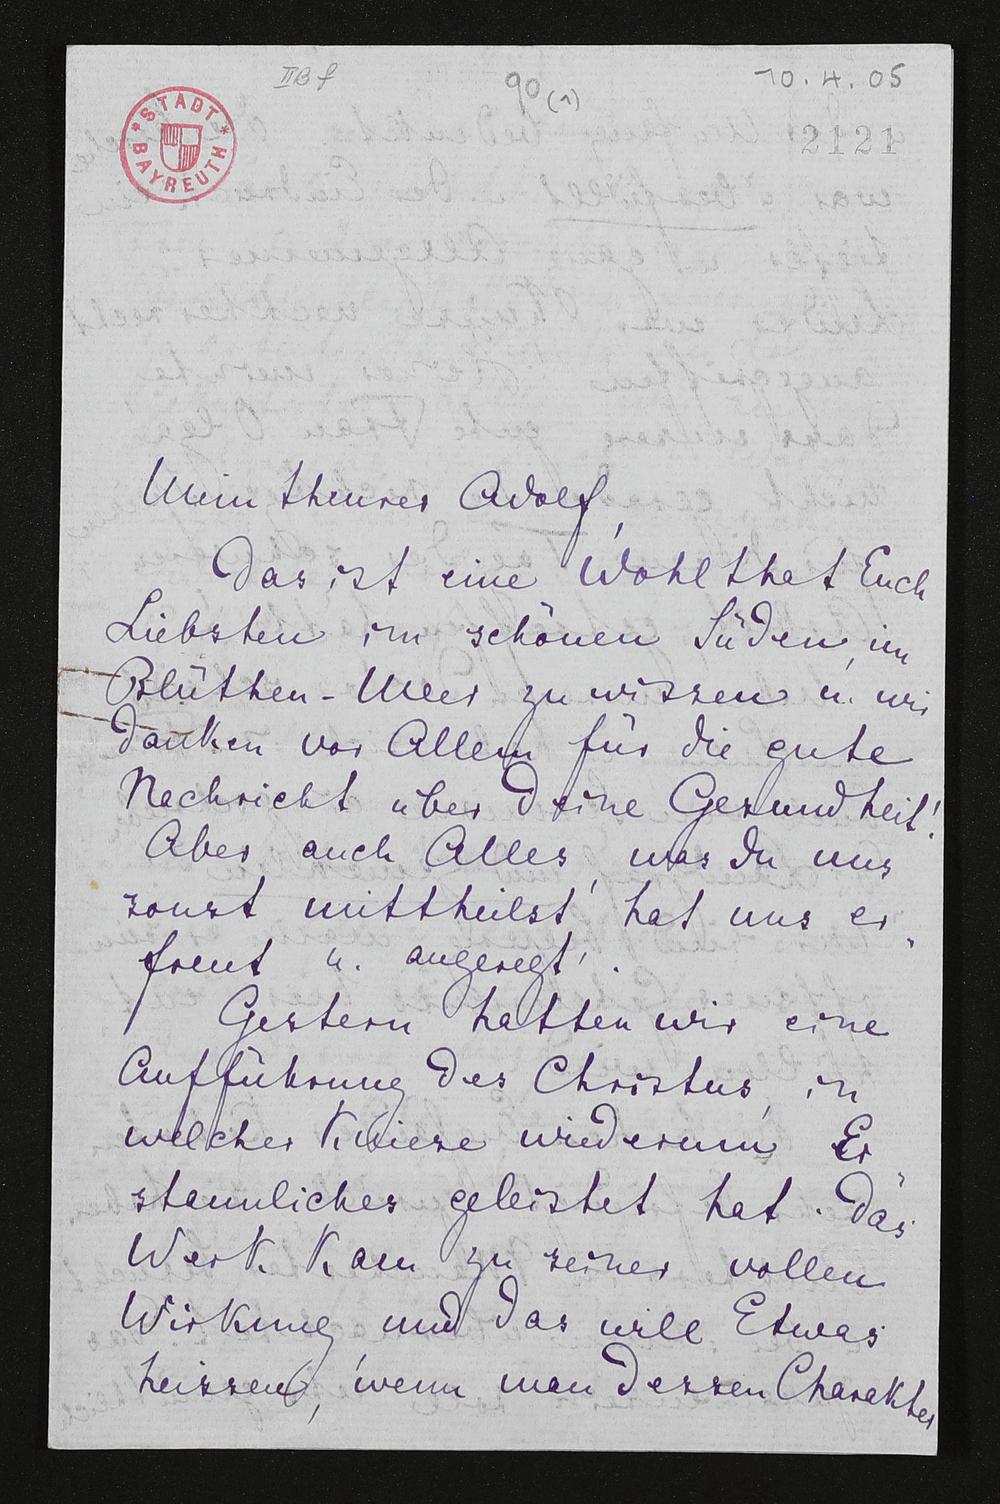 IIBf
90 (1)
10.4.05
* STADT * BAYREUTH
2121
Mein theurer Adolf,
Das ist eine Wohlthat Euch
Liebsten im schönen Süden, im
Blüthen-Meer zu wissen u. wir
danken vor Allem für die gute
Nachricht über Deine Gesundheit!
Aber auch Alles, was Du uns
sonst mittheilst, hat uns er
freut u. angeregt.
Gestern hatten wir eine
Aufführung des Christus, in
welcher Kniese wiederum Er
staunliches geleistet hat. Das
Werk kam zu seiner vollen
Wirkung und das will Etwas
heissen, wenn man dessen Charakter